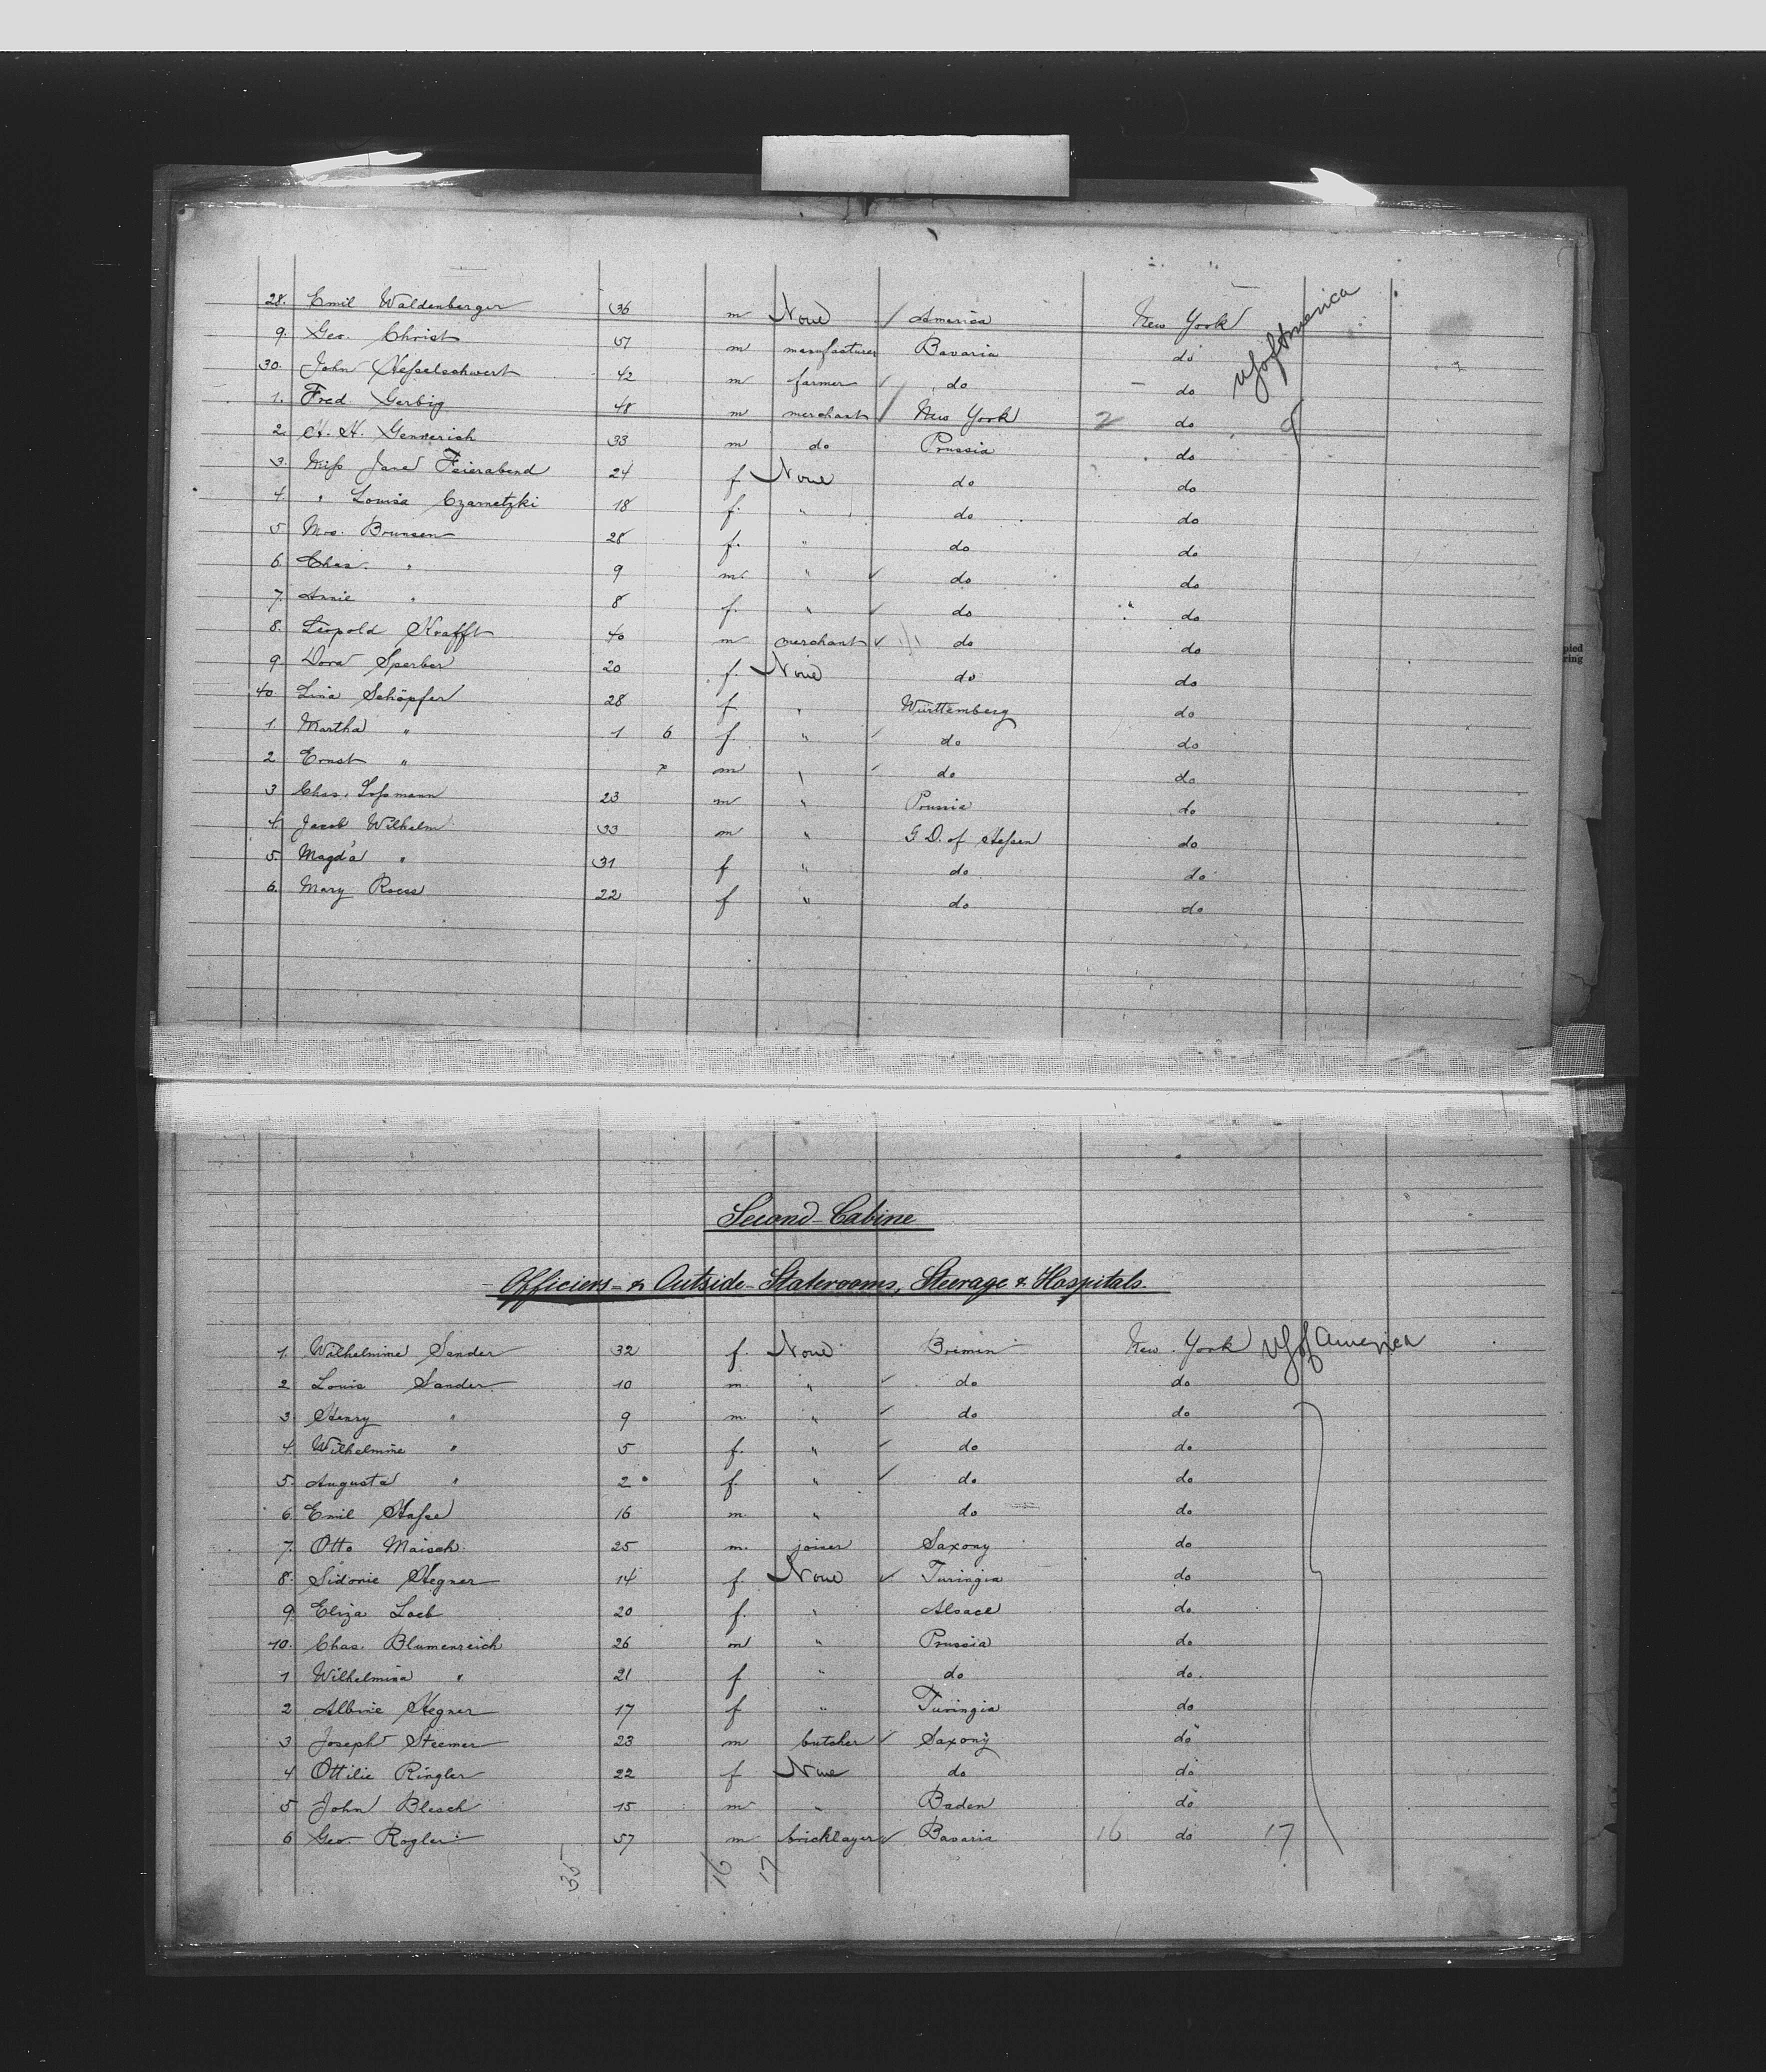 28. Emil Waldenberger 36 m None ✓ America New York US of America
9. Geo. Christ 51 m manufacturer Bavaria do
30. John Hesselschwert 42 m farmer ✓ do do
1. Fred Gerbig 48 m merchant New York 2 do
2. H. H. Gennerich 33 m do Prussia do
3. Miss Jane Feierabend 24 f None do do
4. " Louisa Czarnetzki 18 f. " do do
5 Mrs. Brunsen 28 f. " do do
6. Chas. " 9 m " ✓ do do
7. Annie " 8 f. " ✓ do do
8. Leopold Krafft 40 m merchant ✓ do do
9 Dora Sperber 20 f. None do do
40 Lina Schöpfer 28 f " Württemberg do
1. Martha " 1 6 f " ✓ do do
2 Ernst " m " ✓ do do
3 Chas. Lossmann 23 m " Prussia do
4. Jacob Wilhelm 33 m " G. D. of Hessen do
5. Magd'a " 31 f " do do
6. Mary Roess 22 f " do do
pied
ring
Second-Cabine
Officiers- & Outside-Staterooms, Steerage & Hospitals.
1. Wilhelmine Sander 32 f. None Bremin New York US of America
2 Louis Sander 10 m. " ✓ do do
3. Henry " 9 m. " ✓ do do
4. Wilhelmine " 5 f. " ✓ do do
5. Augusta " 2 f. " ✓ do do
6. Emil Hasse 16 m. " do do
7. Otto Maisch 25 m. joiner Saxony do
8. Sidonie Hegner 14 f. None ✓ Turingia do
9. Eliza Loeb 20 f. " Alsace do
10. Chas. Blumenreich 26 m " Prussia do
1 Wilhelmina " 21 f " do do.
2 Albine Hegner 17 f " Turingia do
3 Joseph Steemer 23 m butcher ✓ Saxony do
4 Ottilie Ringler 22 f None do do
5 John Blesch 15 m " Baden do
6 Geo. Rogler 57 m bricklayer ✓ Bavaria 16 do 17
35 16 17